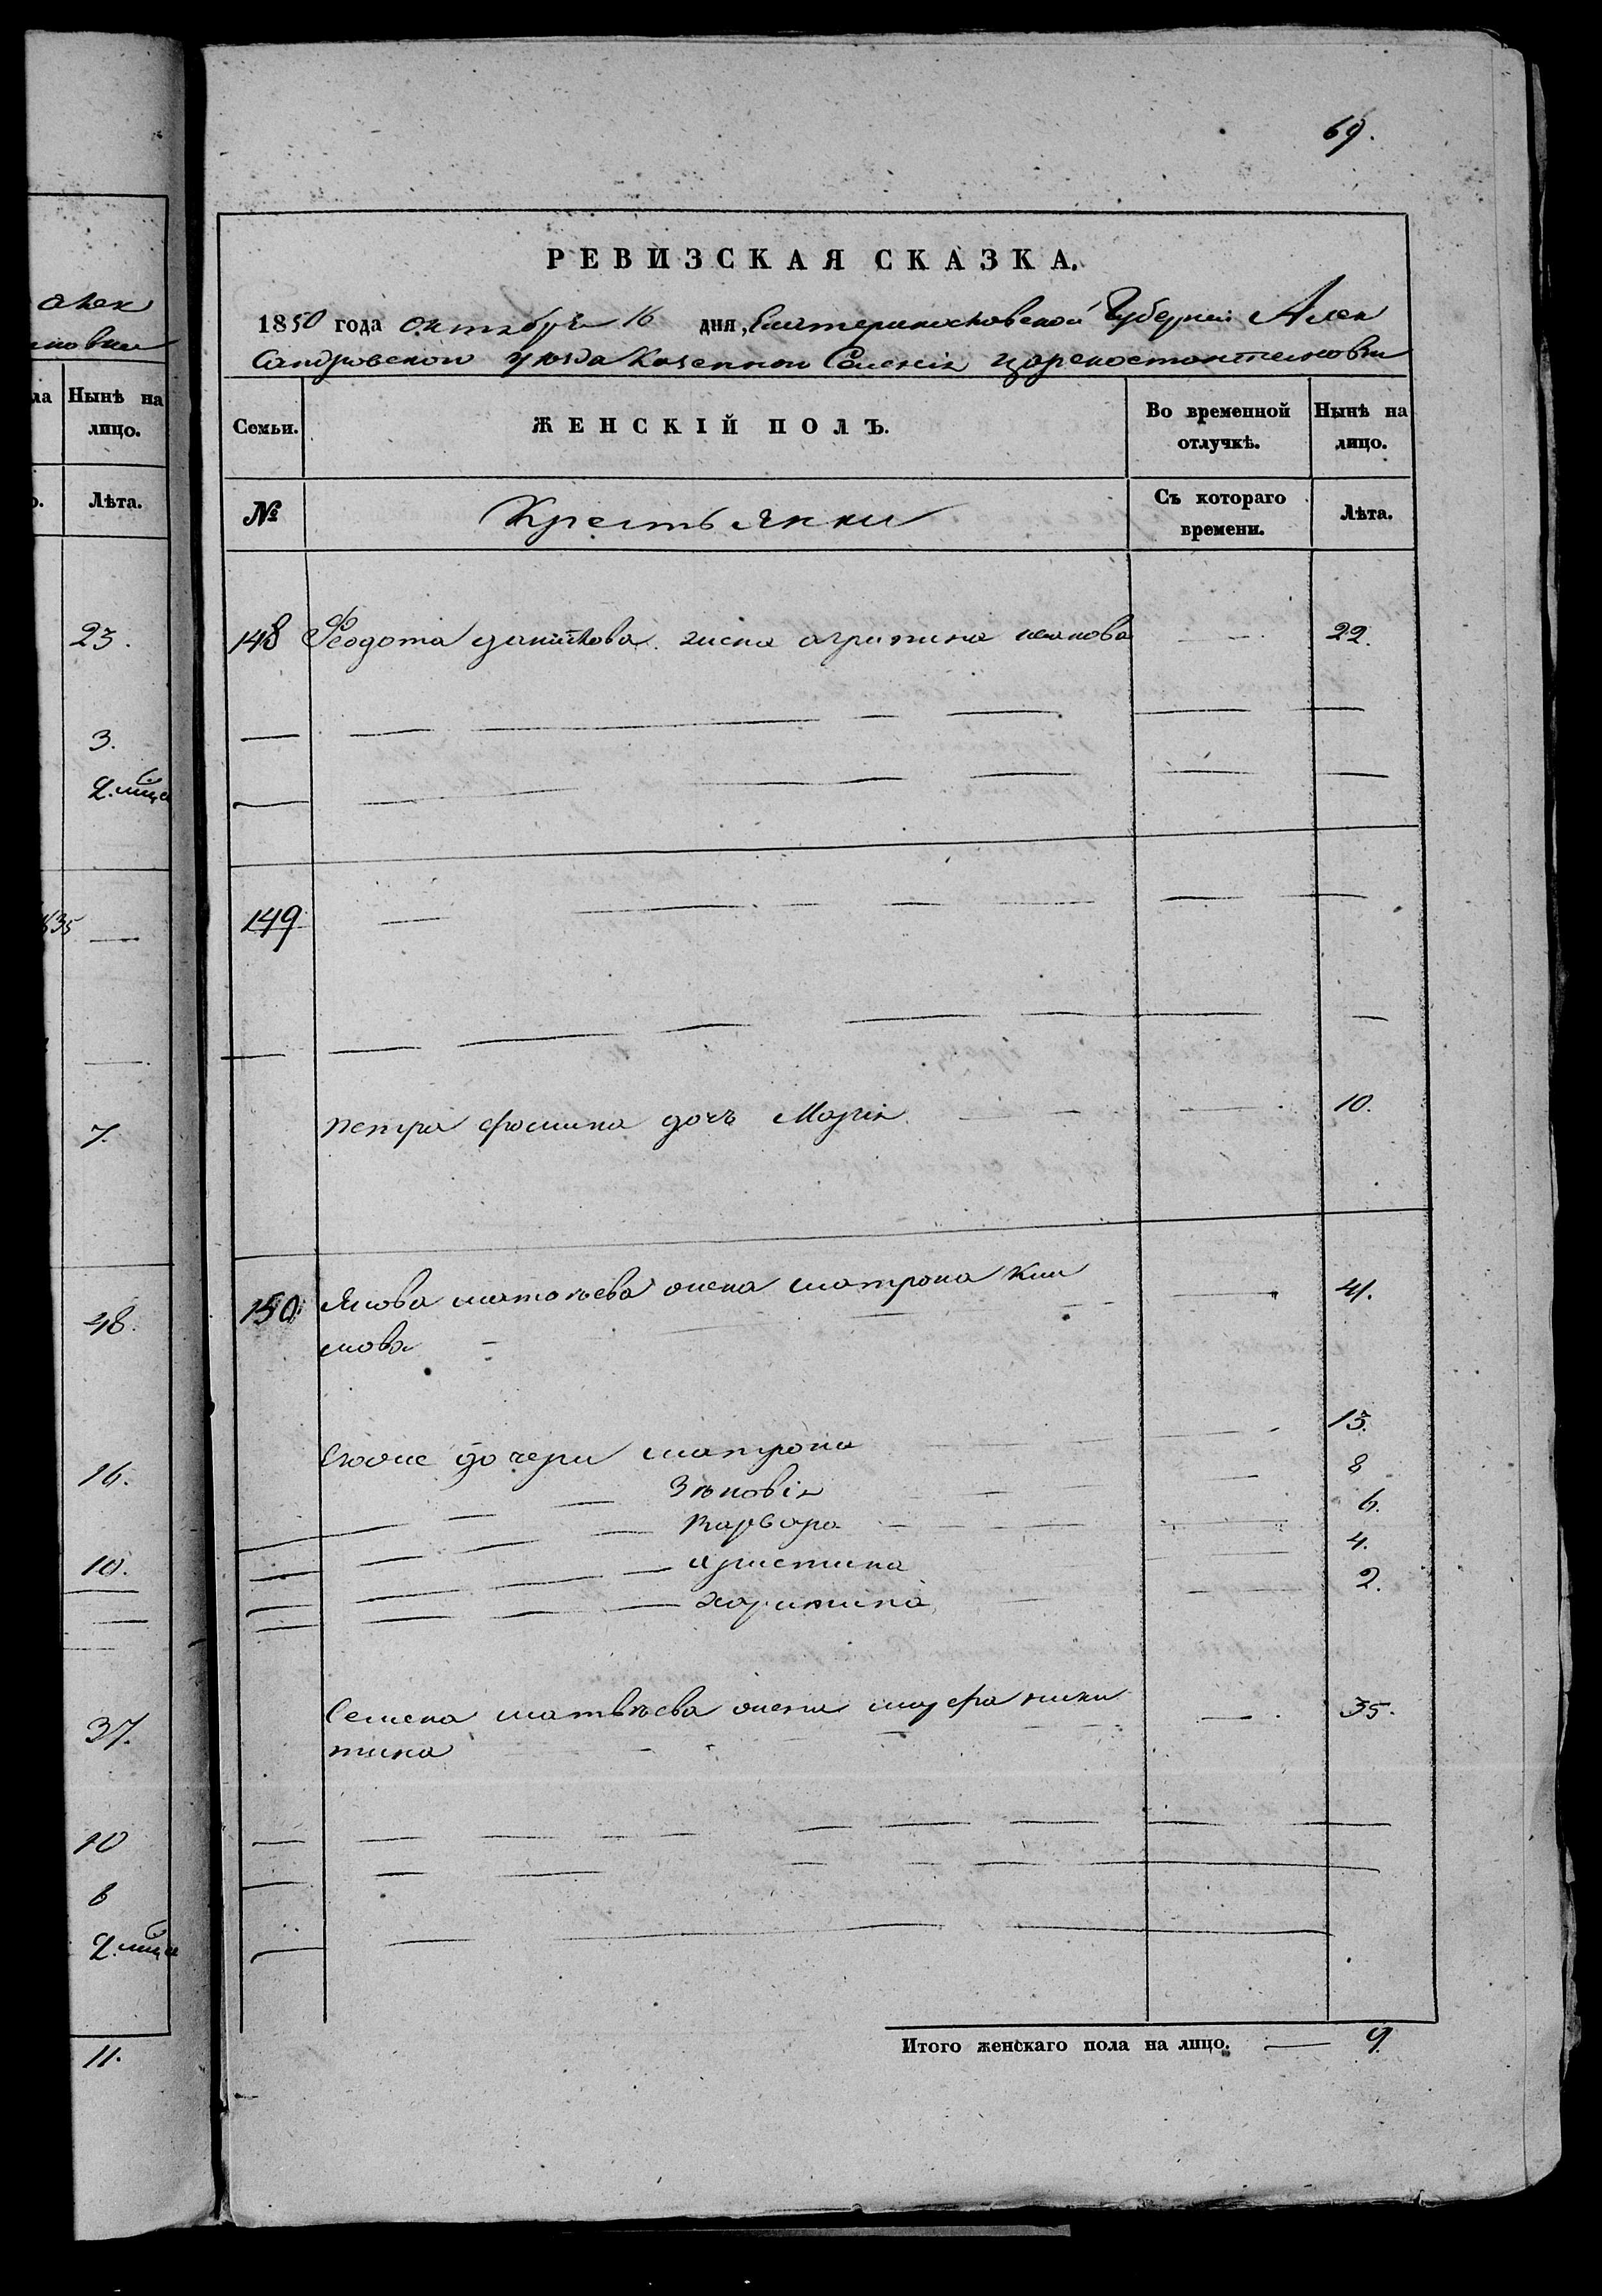 алек
новки
на Нынѣ на
лицо.
Лѣта.
23.
3.
835
7.
48.
16.
10.
37.
10
11.
69.
РЕВИЗСКАЯ СКАЗКА.
1850 года октября 16 дня, Екатеринославской Губерніи Алек
сандровского уезда Казенного Селенія Царекостантиновки
Семьи. ЖЕНСКІЙ ПОЛЪ. Во временной отлучкѣ. Нынѣ на лицо.
№ Крестьянки Съ котораго времени. Лѣта.
148 Феодота данилова жена агрипина иванова 22.
149
петра фомина дочь Марія 10.
150 Якова матвѣева жена матрона Кли 41.
мова
Его дочери матрона 13.
Зѣновія 8
варвара 6.
христина 4.
харитина 2.
Семена матвѣева жена ники 35.
тина
Итого женскаго пола на лицо. 9.